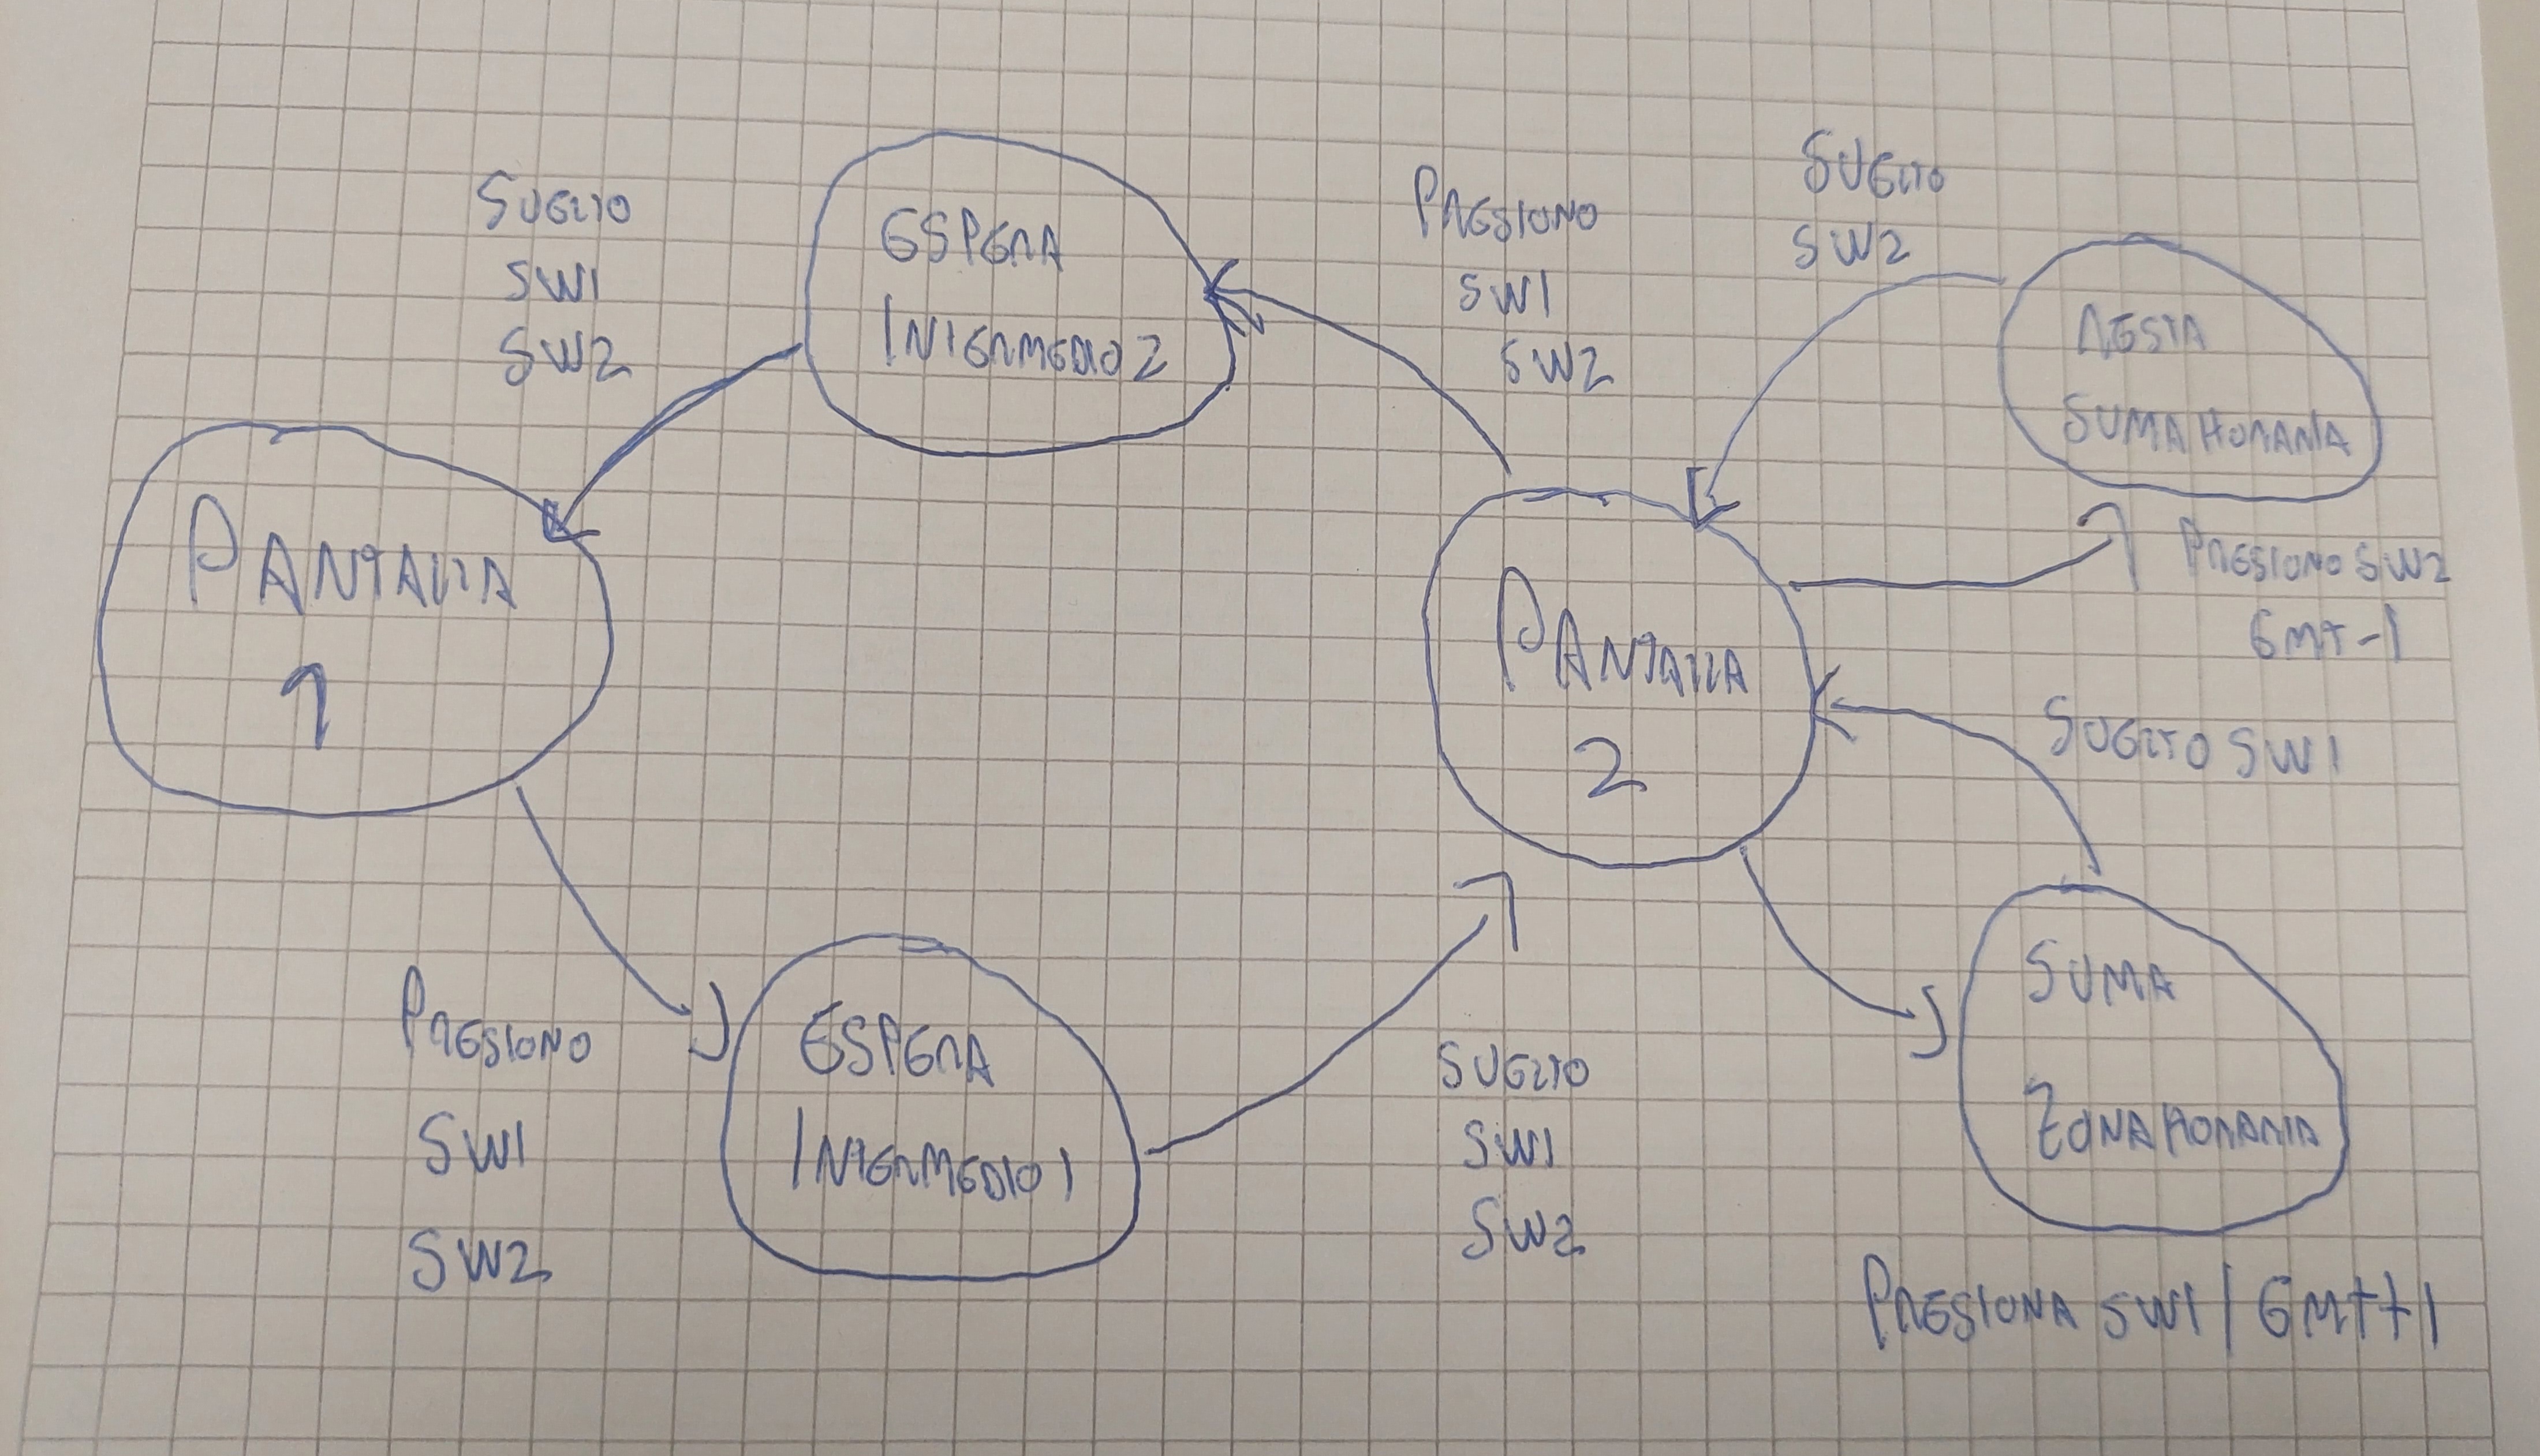 SUELTO
SW1
SW2
ESPERA
INTERMEDIO 2
PRESIONO
SW1
SW2
SUELTO
SW2
RESTA
SUMA HORARIA
PANTALLA
1
PANTALLA
2
PRESIONO SW2
GMT-1
SUELTO SW1
PRESIONO
SW1
SW2
ESPERA
INTERMEDIO 1
SUELTO
SW1
SW2
SUMA
ZONA HORARIA
PRESIONA SW1 / GMT+1